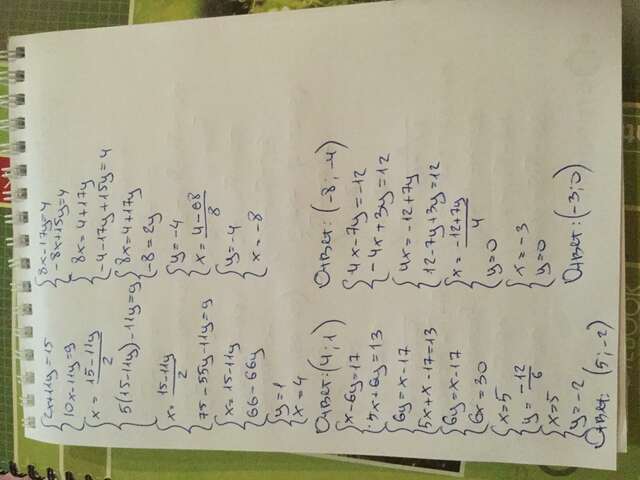 {2x+11y=15
{10x-11y=9
{x=15-11y/2
{5(15-11y)-11y=9
{x=15-11y/2
{75-55y-11y=9
{x=15-11y
{66-66y
{y=1
{x=4
Ответ:(4;1)
{x-6y=17
{5x+6y=13
{6y=x-17
{5x+x-17=13
{6y=x-17
{6x=30
{x=5
{y=-12/6
{x=5
{y=-2
Ответ: (5;-2)
{8x-17y=4
{-8x+15y=4
{8x=4+17y
{-4-17y+15y=4
{8x=4+17y
{-8=2y
{y=-4
{x=4-68/8
{y=-4
{x=-8
Ответ: (-8;-4)
{4x-7y=-12
{-4x+3y=12
{4x=-12+7y
{12-7y+3y=12
{x=-12+7y/4
{y=0
{x=-3
{y=0
Ответ: (-3;0)